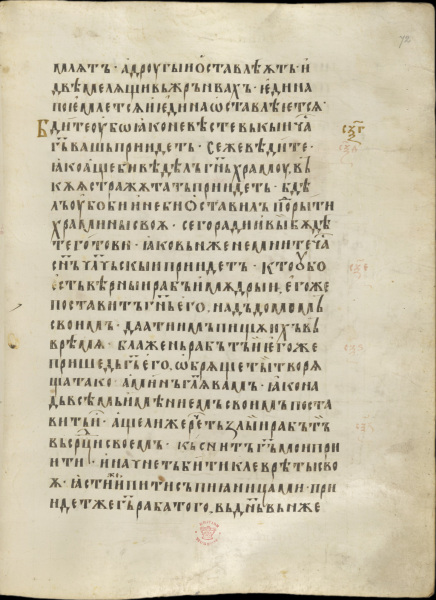 72
млѧтъ · а дроугыи ѡставлѣѫтъ · и
двѣ мелѧщи въ жрънвахъ · и едина
поемлетсѧ и едина ѡставлѣетсѧ ·
Бдите оубѡ ꙗко не вѣсте въ кыи ча҃
г҃ь вашь приидетъ · се же вѣдите ·
ꙗко аще би вѣдѣлъ г҃нъ храмоу, въ
кѫѧ стражѫ тать прїидетъ · бдѣ
лъ оубо би и не би ѡставилъ порыти
храмины своѧ · сего ради и вы бѫдѣ
те готови · ꙗко въ н҄же не мните ча҃
сн҃ъ чл҃чьскыи прїидетъ · кто оубо
естъ вѣрныи рабъ и мѫдрыи, егоже
поставитъ г҃нъ его, надъ домомъ
своимъ · даати имъ пищѫ ихъ въ
врѣмѧ · блаженъ рабъ тъи егоже
пришедъ г҃ъ его, ѡбрѧщетъ творѧ
ща тако · аминь гл҃ѧ вамъ · ꙗко на
дъ всѣмъ имѣнемъ своимъ поста
витъ и · аще ли же речетъ зълыи рабъ тъ
въ ср҃ци своемъ · къснитъ г҃ъ мои прїи
ити · и начнетъ бити клеврѣты сво
ѧ · ꙗсти же и пити съ пиꙗницами · прїи
идетъ же г҃ъ раба того, въ дн҃ь въ ньже